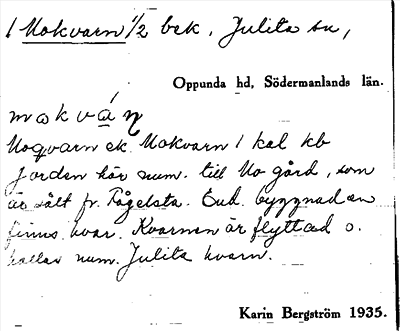 1 Mokvarn 1/2 bek, Julita sn,
Oppunda hd, Södermanlands län.
mokvá̱ɳ
Moqvarn ek. Mokvarn 1 kal kb
Jorden hör num. till Mo gård, som
är sålt fr. Fågelsta. End. byggnaden
finns kvar. Kvarnen är flyttad o.
kallas num. Julita kvarn.
Karin Bergström 1935.